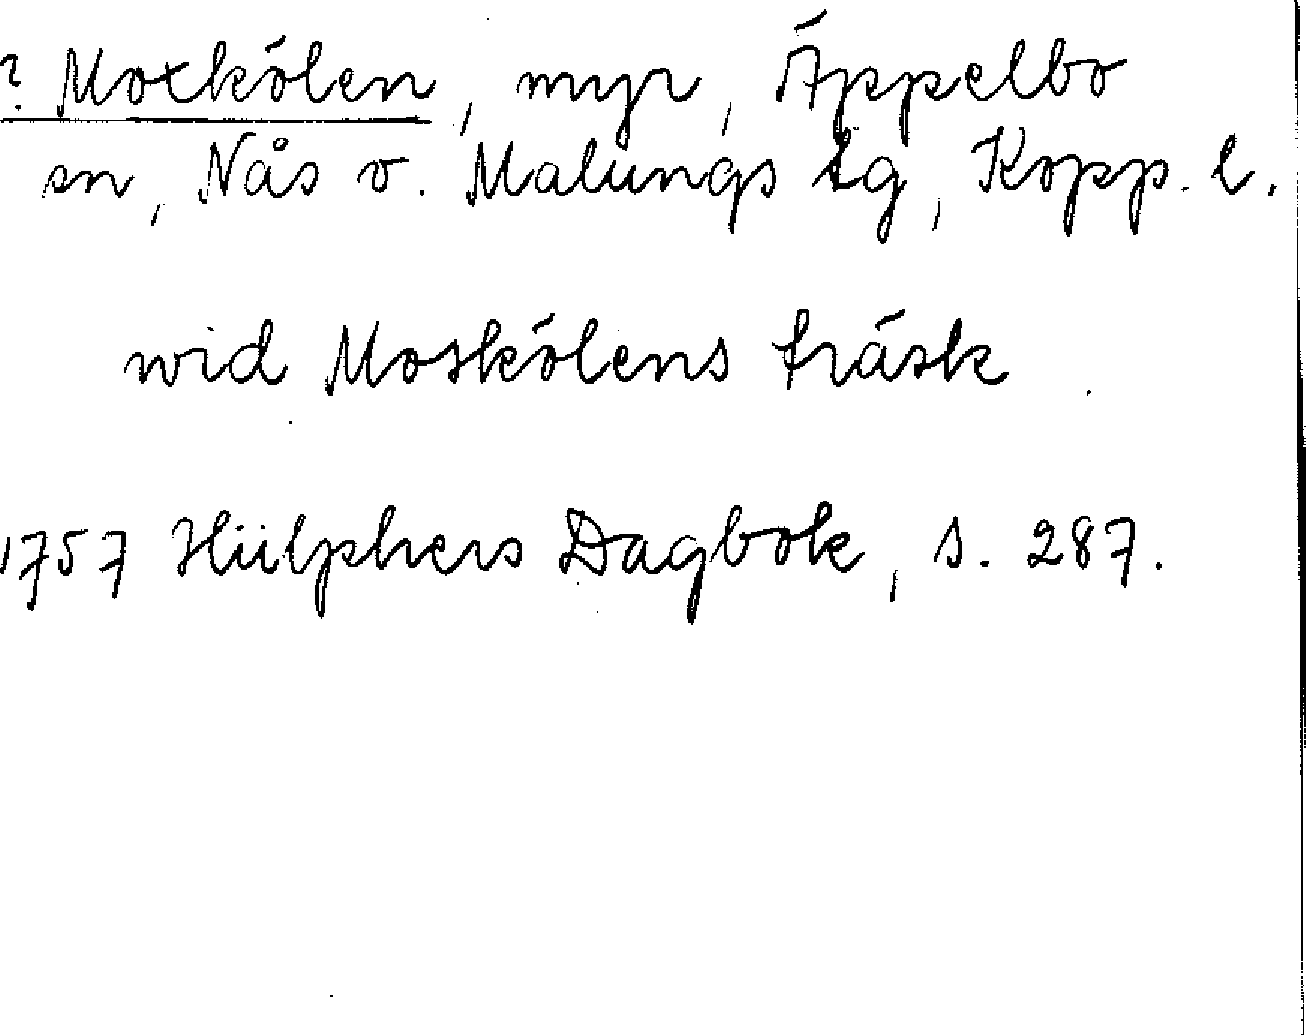 ? Motkölen, myr, Äppelbo
sn, Nås o. Malungs tg, Kopp. l.
wid Moskölens träsk
1757 Hülphers Dagbok, s. 287.